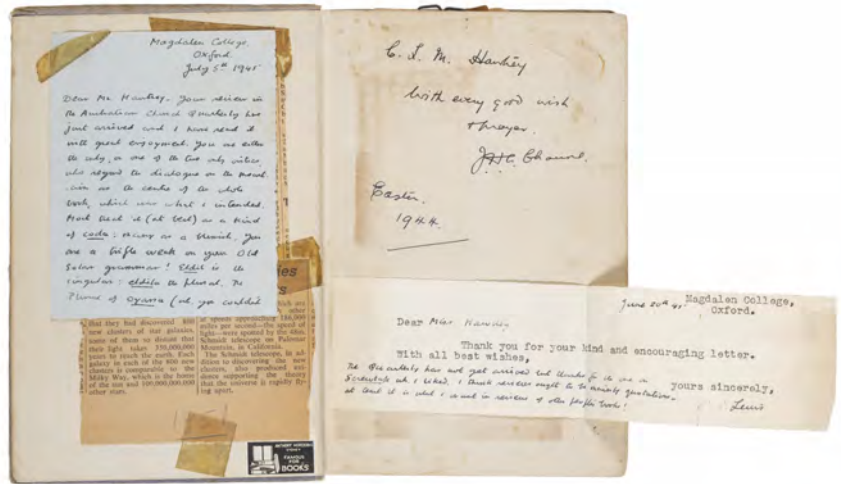 Magdalen College,
Oxford.
July 5th 1945
Dear Mr. Hawkey. Your review in
the Australian Church Quarterly has
just arrived and I have read it
with great enjoyment. You are either
the only, or one of the two only critics,
who regard the dialogue on the mount-
-ain as the centre of the whole
book, which was what I intended.
Most treat it (at best) as a kind
of coda: many as a blemish. You
are a trifle weak on your Old
Solar grammar! Eldil is the
singular: eldila the plural. The
Prince of Oyarsa (wh. you
ies
s
that they had discovered 800
new clusters of star galaxies,
some of them so distant that
their light takes 350,000,000
years to reach the earth. Each
galaxy in each of the 800 new
clusters is comparable to the
Milky Way, which is the home
of the sun and 100,000,000,000
other stars.
which are
other
at speeds approaching 186,000
miles per second—the speed of
light—were spotted by the 48in.
Schmidt telescope on Palomar
Mountain, in California.
The Schmidt telescope, in ad-
dition to discovering the new
clusters, also produced evi-
dence supporting the theory
that the universe is rapidly fly-
ing apart.
FAMOUS
FOR
BOOKS
C. L. M. Hawkey
With every good wish
& prayer.
Easter.
1944.
June 20th 45
Magdalen College,
Oxford.
Dear Miss Hawkey
Thank you for your kind and encouraging letter.
With all best wishes,
yours sincerely,
Lewis
The Quarterly has not yet arrived but thanks for the one on
Screwtape wh. I liked. I think reviews ought to be mainly quotations-
at least it is what I want in reviews of other people's books!